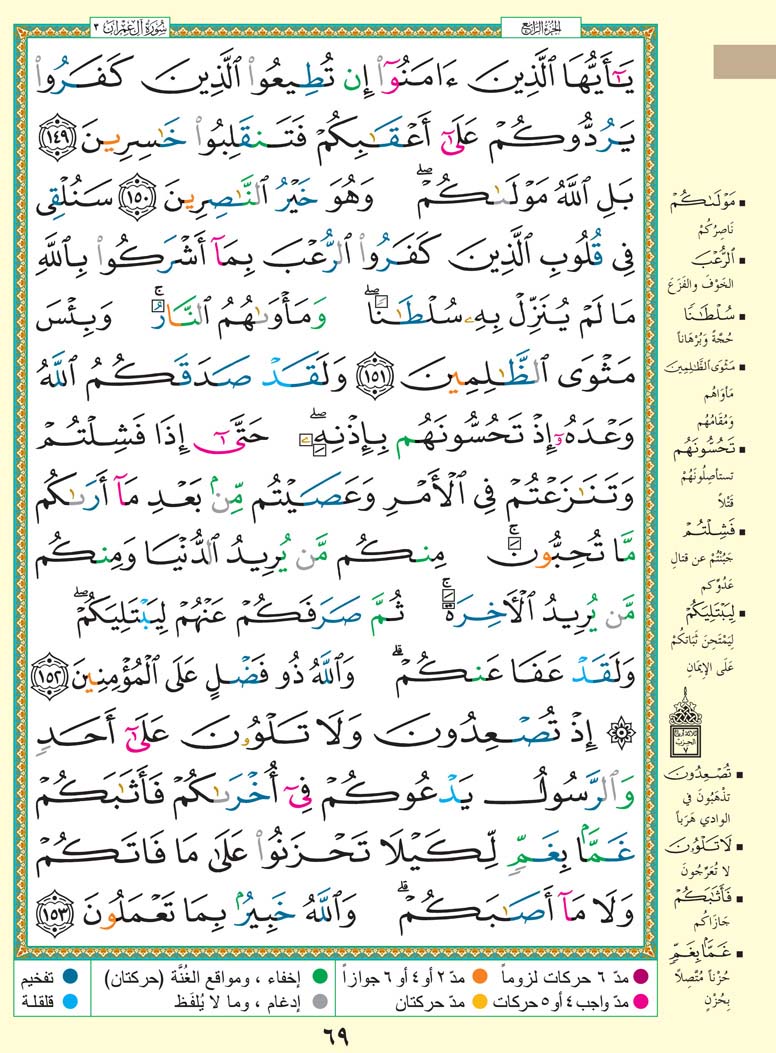 الجزء الرابع
سورة آل عمران ٣
يَٰٓأَيُّهَا ٱلَّذِينَ ءَامَنُوٓا۟ إِن تُطِيعُوا۟ ٱلَّذِينَ كَفَرُوا۟
يَرُدُّوكُمْ عَلَىٰٓ أَعْقَٰبِكُمْ فَتَنقَلِبُوا۟ خَٰسِرِينَ ١٤٩
بَلِ ٱللَّهُ مَوْلَىٰكُمْ ۖ وَهُوَ خَيْرُ ٱلنَّٰصِرِينَ ١٥٠ سَنُلْقِى
فِى قُلُوبِ ٱلَّذِينَ كَفَرُوا۟ ٱلرُّعْبَ بِمَآ أَشْرَكُوا۟ بِٱللَّهِ
مَا لَمْ يُنَزِّلْ بِهِۦ سُلْطَٰنًا ۖ وَمَأْوَىٰهُمُ ٱلنَّارُ ۚ وَبِئْسَ
مَثْوَى ٱلظَّٰلِمِينَ ١٥١ وَلَقَدْ صَدَقَكُمُ ٱللَّهُ
وَعْدَهُۥٓ إِذْ تَحُسُّونَهُم بِإِذْنِهِۦ ۖ حَتَّىٰٓ إِذَا فَشِلْتُمْ
وَتَنَٰزَعْتُمْ فِى ٱلْأَمْرِ وَعَصَيْتُم مِّنۢ بَعْدِ مَآ أَرَىٰكُم
مَّا تُحِبُّونَ ۚ مِنكُم مَّن يُرِيدُ ٱلدُّنْيَا وَمِنكُم
مَّن يُرِيدُ ٱلْءَاخِرَةَ ۚ ثُمَّ صَرَفَكُمْ عَنْهُمْ لِيَبْتَلِيَكُمْ ۖ
وَلَقَدْ عَفَا عَنكُمْ ۗ وَٱللَّهُ ذُو فَضْلٍ عَلَى ٱلْمُؤْمِنِينَ ١٥٢
۞ إِذْ تُصْعِدُونَ وَلَا تَلْوُۥنَ عَلَىٰٓ أَحَدٍ
وَٱلرَّسُولُ يَدْعُوكُمْ فِىٓ أُخْرَىٰكُمْ فَأَثَٰبَكُمْ
غَمًّۢا بِغَمٍّ لِّكَيْلَا تَحْزَنُوا۟ عَلَىٰ مَا فَاتَكُمْ
وَلَا مَآ أَصَٰبَكُمْ ۗ وَٱللَّهُ خَبِيرٌۢ بِمَا تَعْمَلُونَ ١٥٣
▪ مَوْلَىٰكُمْ
نَاصِرُكُمْ
▪ ٱلرُّعْبَ
الخَوْفَ والفَزَعَ
▪ سُلْطَٰنًا
حُجَّةً وَبُرْهَاناً
▪ مَثْوَى ٱلظَّٰلِمِينَ
مَأوَاهُم
وَمُقَامُهُم
▪ تَحُسُّونَهُم
تستأصِلُونَهُمْ
قَتْلاً
▪ فَشِلْتُمْ
جَبُنْتُمْ عن قتالِ
عَدُوِّكم
▪ لِيَبْتَلِيَكُمْ
لِيَمْتَحِنَ ثَبَاتكُمْ
عَلَى الإِيمَانِ
ثلاثة أرباع
الحزب
٧
▪ تُصْعِدُونَ
تذْهَبُونَ في
الوادي هَرَباً
▪ لَا تَلْوُۥنَ
لا تُعَرِّجُونَ
▪ فَأَثَٰبَكُمْ
جَازَاكُم
▪ غَمًّۢا بِغَمٍّ
حُزْناً مُتَّصِلاً
بِحُزْنٍ
مدّ ٦ حركات لزوماً
مدّ ٢ أو ٤ أو ٦ جوازاً
إخفاء ، ومواقع الغُنَّة (حركتان)
تفخيم
مدّ واجب ٤ أو ٥ حركات
مدّ حركتان
إدغام ، وما لا يُلفَظ
قلقلة
٦٩